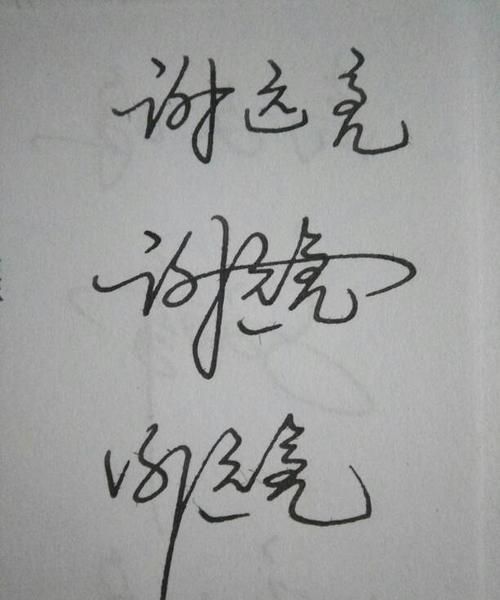 谢远亮
谢远亮
谢远亮